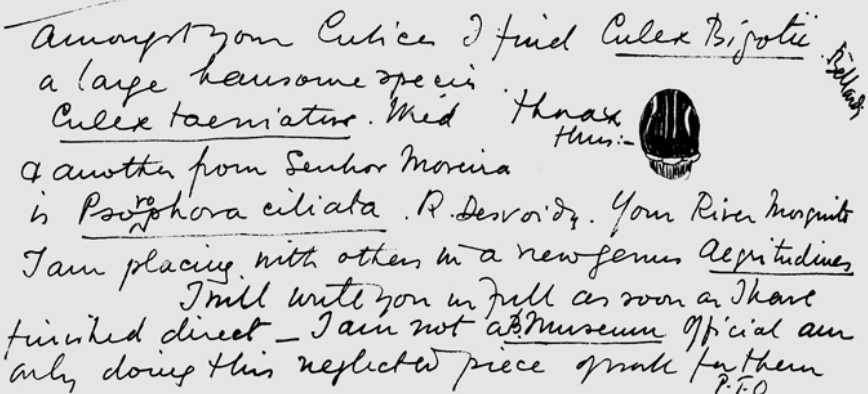 Amongst your Culices I find Culex Bigotii.
a large hansome specis
Culex taeniatus. Wied thorax
thus:-
& another from Senhor Moreira
is Psorophora ciliata. R. Desvoidy. Your River Mosquito
I am placing with others in a new genus Aegritudines
I will write you in full as soon as I have
finished direct – I am not a B. Museum official am
only doing this neglected piece of work for them
P.T.O